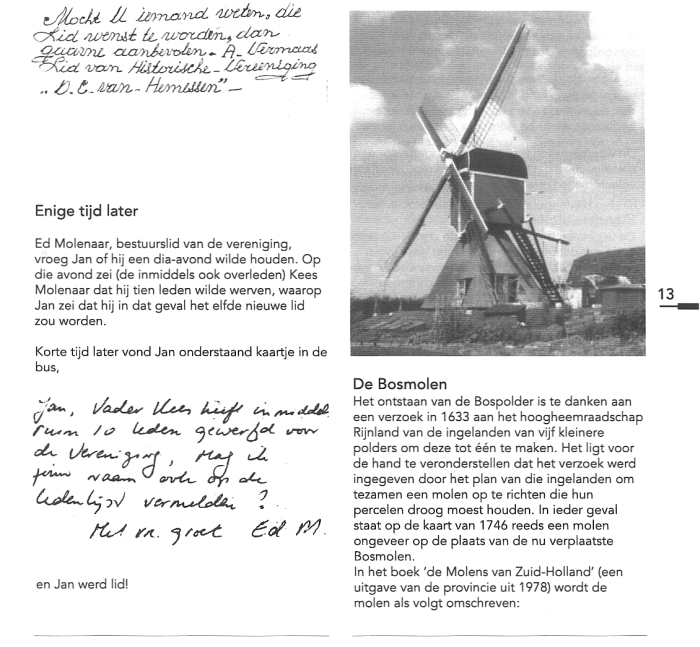 Mocht U iemand weten, die
Lid wenst te worden, dan
gaarne aanbevolen. A. Vermaas
Lid van Historische-Vereeniging
„D.E. van-Hemessen"-
Enige tijd later
Ed Molenaar, bestuurslid van de vereniging,
vroeg Jan of hij een dia-avond wilde houden. Op
die avond zei (de inmiddels ook overleden) Kees
Molenaar dat hij tien leden wilde werven, waarop
Jan zei dat hij in dat geval het elfde nieuwe lid
zou worden.
Korte tijd later vond Jan onderstaand kaartje in de
bus,
Jan, Vader Kees heeft inmiddels
ruim 10 leden geworfd voor
de Vereniging, Mag ik
jouw naam ook op de
ledenlijst vermelden ?
Met vr. groet Ed M.
en Jan werd lid!
De Bosmolen
Het ontstaan van de Bospolder is te danken aan
een verzoek in 1633 aan het hoogheemraadschap
Rijnland van de ingelanden van vijf kleinere
polders om deze tot één te maken. Het ligt voor
de hand te veronderstellen dat het verzoek werd
ingegeven door het plan van die ingelanden om
tezamen een molen op te richten die hun
percelen droog moest houden. In ieder geval
staat op de kaart van 1746 reeds een molen
ongeveer op de plaats van de nu verplaatste
Bosmolen.
In het boek ‘de Molens van Zuid-Holland’ (een
uitgave van de provincie uit 1978) wordt de
molen als volgt omschreven:
13